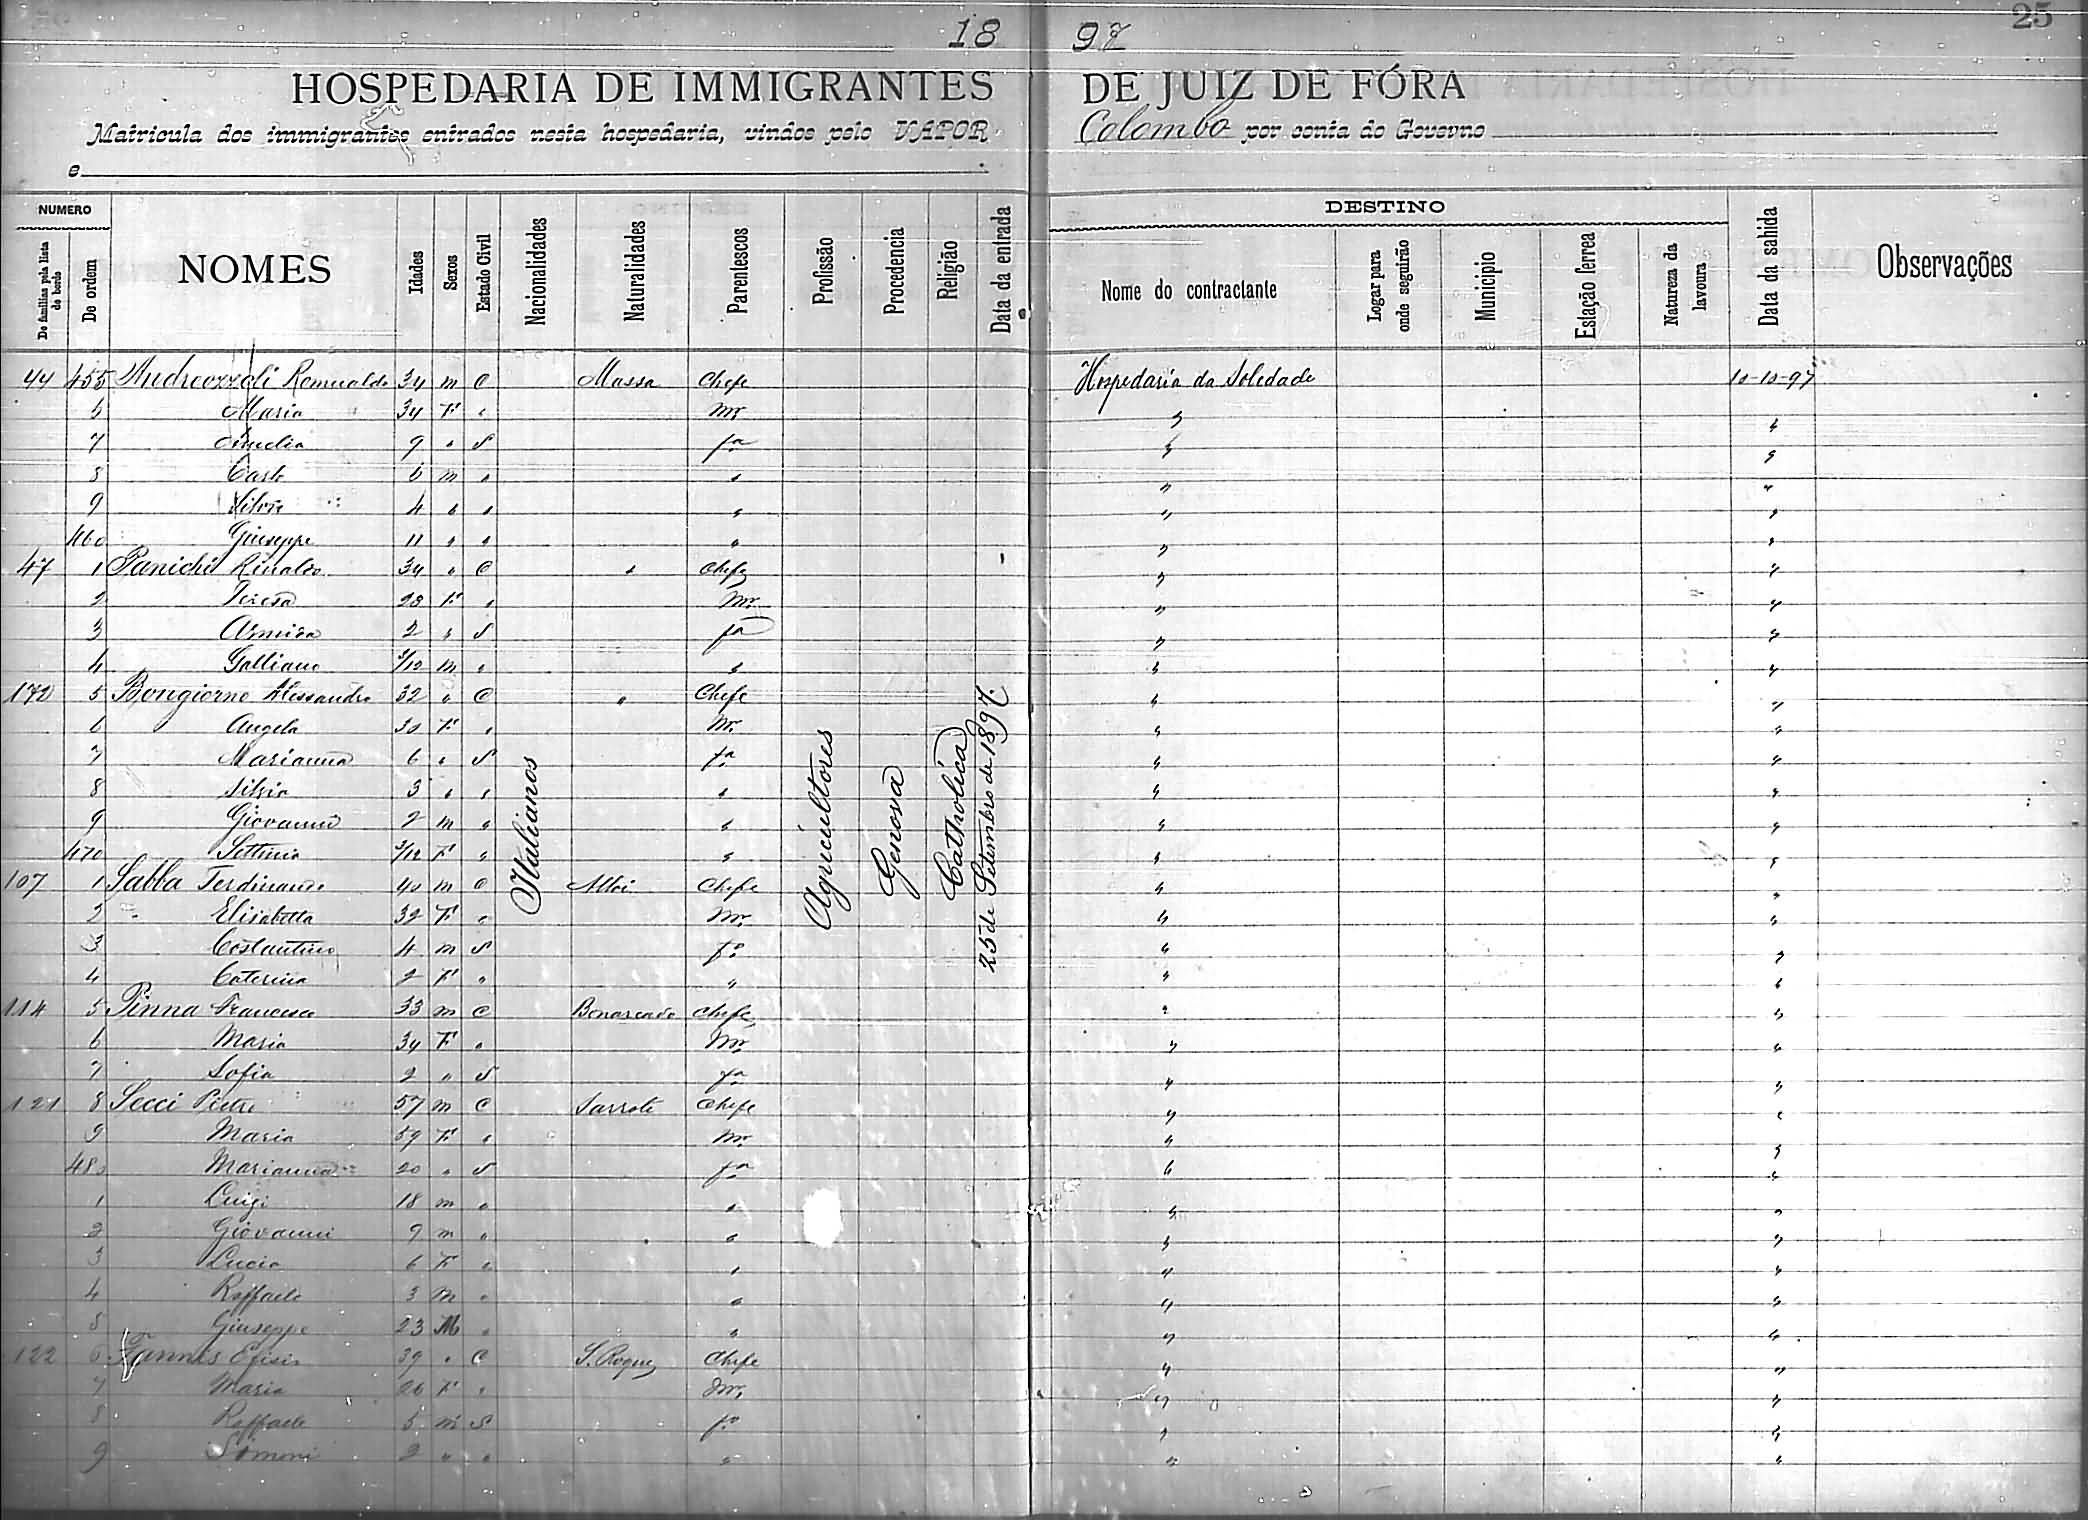 25
18 97
HOSPEDARIA DE IMMIGRANTES DE JUIZ DE FÓRA
Matricula dos immigrantes entrados nesta hospedaria, vindos pelo VAPOR Colombo por conta do Governo
e
NUMERO DESTINO
De familias pela lista de bordo De ordem NOMES Idades Sexos Estado Civil Nacionalidades Naturalidades Parentescos Profissão Procedencia Religião Data da entrada Nome do contractante Logar para onde seguirão Municipio Estação ferrea Natureza da lavoura Data da sahida Observações
44 455 Andreozzoli Romualdo 34 m C Massa Chefe Hospedaria da Soledade 10-10-97
6 Maria 34 F " Mr. " "
7 Amelia 9 " S fa " "
8 Carlo 6 m " " " "
9 4 " " " " "
460 Giuseppe 11 " " " " "
47 1 Panichi Rinaldo 34 " C " Chefe " "
2 Teresa 28 F " Mr. " "
3 Armida 2 " S fa " "
4 Galliano 3/12 m " " " "
172 5 Bongiorno Alessandro 32 " C " Chefe " "
6 Angela 30 F " Mr. " "
7 Marianna 6 " S fa " "
8 Silvia 3 " " " " "
9 Giovanni 2 m " " " "
470 Settimia 3/12 F " " " "
Italianos Agricultores Genova Catholica 25 de Setembro de 1897.
107 1 Sabba Ferdinando 40 m C Chefe " "
2 Elisabetta 32 F " Mr. " "
3 Costantino 4 m S fo " "
4 Caterina 2 F " " " "
114 5 Pinna Francesco 33 m C Bonarcado Chefe " "
6 Maria 34 F " Mr. " "
7 Sofia 2 " S fa " "
121 8 Secci Pietro 57 m C Chefe " "
9 Maria 59 F " Mr. " "
480 Marianna 20 " S fa " "
1 Luigi 18 m " " " "
2 Giovanni 9 m " " " "
3 Lucia 6 F " " " "
4 Raffaele 3 m " " " "
5 Giuseppe 23 M " " " "
122 6 Fannis Efisio 39 " C S. Roque Chefe " "
7 Maria 26 F " Mr. " "
8 Raffaele 5 m S fo " "
9 Simoni 2 " " " " "